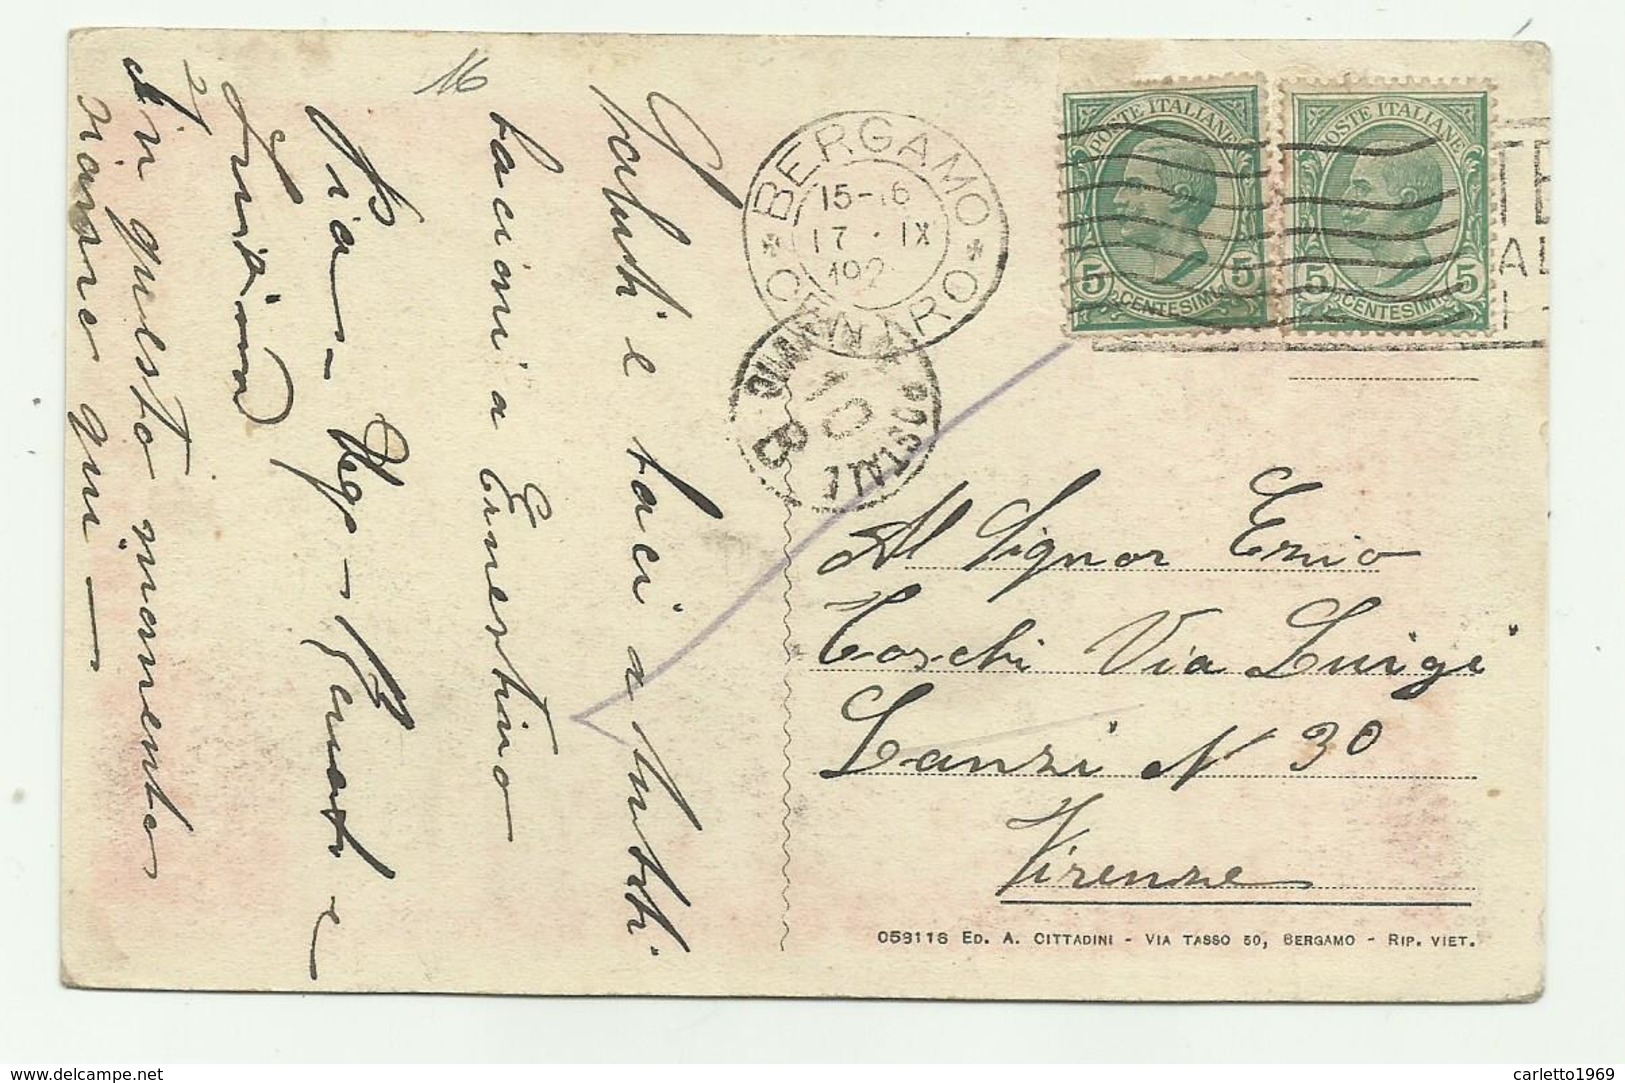 16
Saluti e baci a tutti
bacioni a Ernestino
Pia - Ugo - Renato e
In questo momento
siamo qui -
BERGAMO
15-16
17 · IX
192
CENTRO
POSTALE
10
B
POSTE ITALIANE
5 CENTESIMI 5
POSTE ITALIANE
5 CENTESIMI 5
TE
AL
I -
Al Signor Ezio
Toschi Via Luigi
Lanzi N 30
Firenze
058116 ED. A. CITTADINI - VIA TASSO 50, BERGAMO - RIP. VIET.
www.delcampe.net
carletto1969